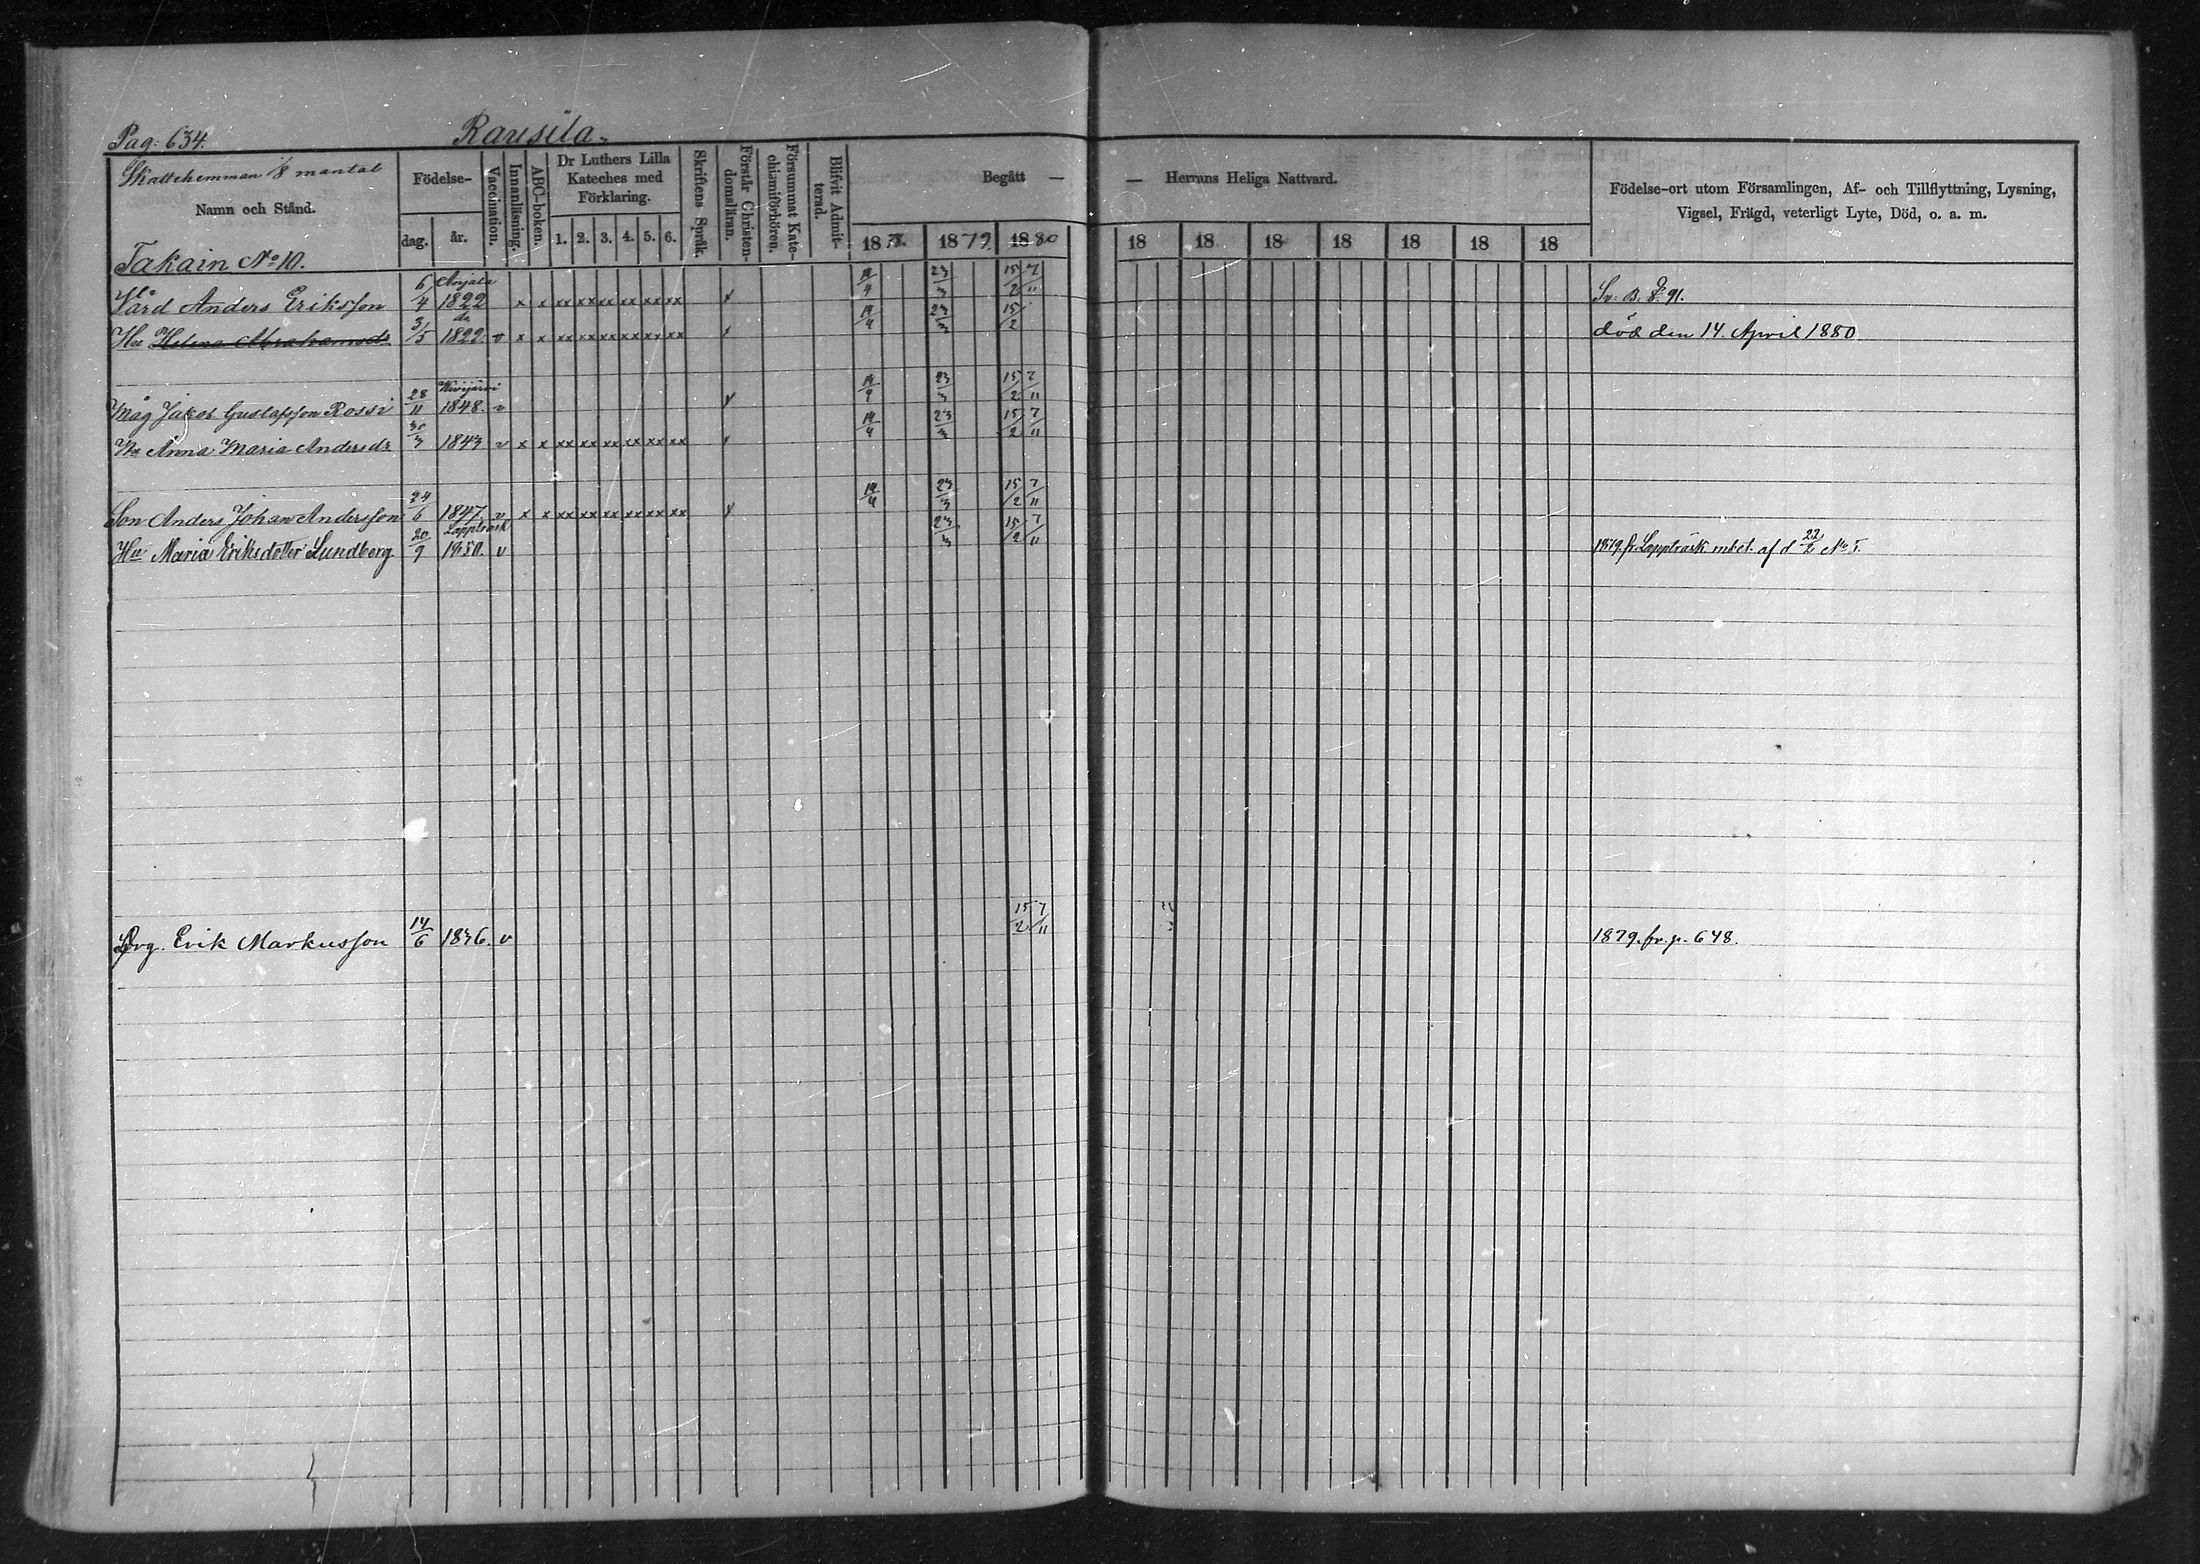 Pag: 634. Rausila.
Skattehemman 1/8 mantal
Namn och Stånd.
Födelse-
dag. år.
Vaccination.
Innanläsning.
ABC-boken.
Dr Luthers Lilla
Kateches med
Förklaring.
1. 2. 3. 4. 5. 6.
Skriftens Språk.
Förstår Christen-
domsläran.
Försummat Kate-
chismiförhören.
Blifvit Admit-
terad.
Begått — — Herrans Heliga Nattvard.
1878. 1879. 1880 18 18 18 18 18 18 18
Födelse-ort utom Församlingen, Af- och Tillflyttning, Lysning,
Vigsel, Frägd, veterligt Lyte, Död, o. a. m.
Takain No 10.
Anjala
Vård Anders Eriksson 6/4 1822 x x xx xx xx xx xx xx x 14/4 23/3 15/2 7/11
do
Hu Helena Abrahamsdr 3/5 1822. v x x xx xx xx xx xx xx x 14/4 23/3 15/2 död den 14. April 1880
Kivijärvi
Måg Jakob Gustafsson Rossi 28/11 1848. v x 23/3 15/2 7/11
Hu Anna Maria Andersdr 30/3 1843 v x x xx xx xx xx xx xx x 14/4 23/3 15/2 7/11
Son Anders Johan Andersson 24/6 1847. v x x xx xx xx xx xx xx x 14/4 23/3 15/2 7/11
Lappträsk
Hu Maria Eriksdotter Lundberg 20/9 1850. v 23/3 15/2 7/11 1879. fr. Lappträsk mbet. af d. 22/2 No 5.
Drg. Erik Markusson 14/6 1836. v 15/2 7/11 1879. fr. p. 648.